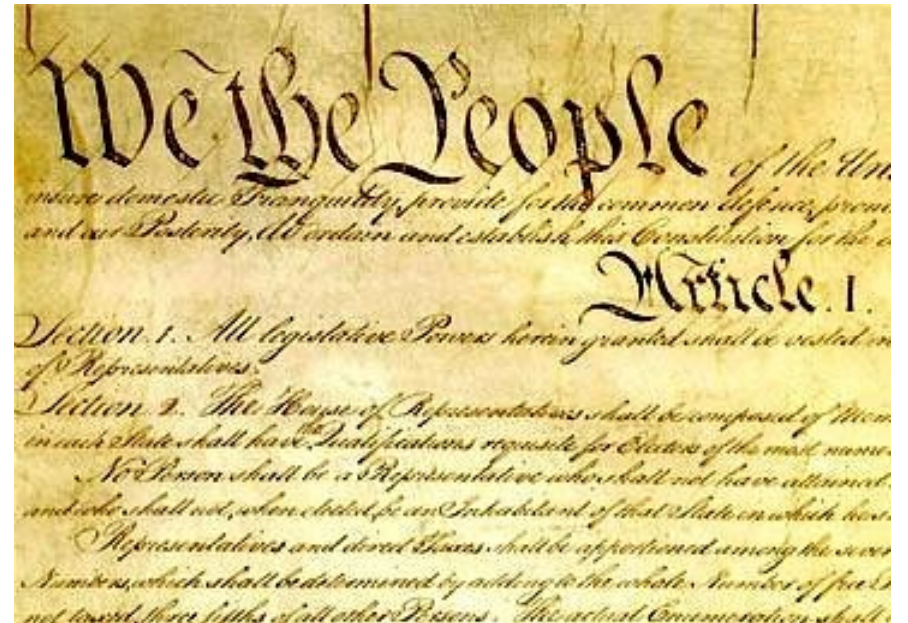 We the People of the Un
insure domestic Tranquility, provide for the common defence, promo
and our Posterity, do ordain and establish this Constitution for the U
Article. I.
Section. 1. All legislative Powers herein granted shall be vested in
of Representatives.
Section. 2. The House of Representatives shall be composed of Mem
in each State shall have the Qualifications requisite for Electors of the most nume
No Person shall be a Representative who shall not have attained
and who shall not, when elected, be an Inhabitant of that State in which he s
Representatives and direct Taxes shall be apportioned among the sever
Numbers, which shall be determined by adding to the whole Number of free
not taxed, three fifths of all other Persons. The actual Enumeration shall